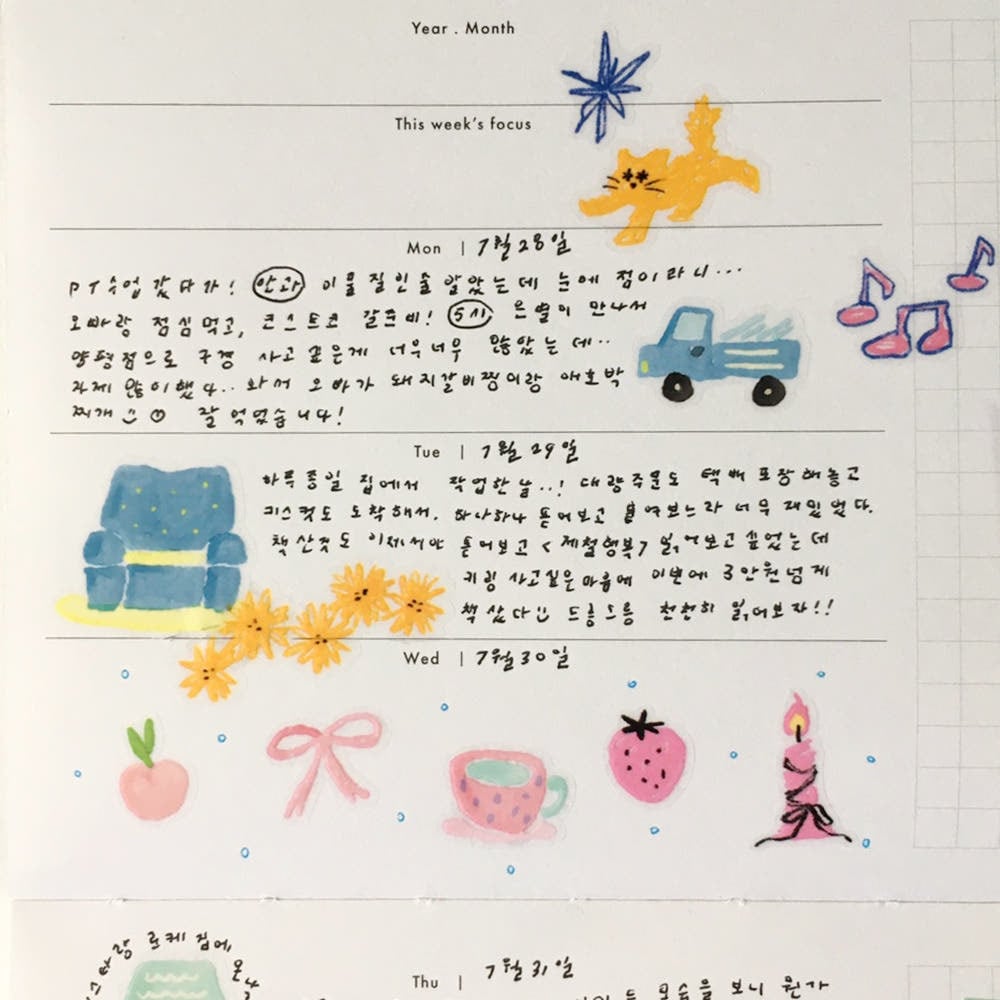 Year . Month
This week's focus
Mon | 7월 28일
PT수업 갔다가! 안과 이물질인줄 알았는데 눈에 점이라니...
오빠랑 점심먹고, 코스트코 갈준비! 5시 은별이 만나서
양평점으로 구경 사고 싶은게 너무너무 많았는데..
자제 많이했다.. 와서 오빠가 돼지갈비찜이랑 애호박
찌개 잘 먹었습니다!
Tue | 7월 29일
하루종일 집에서 작업한날..! 대량주문도 택배 포장해놓고
키스컷도 도착해서, 하나하나 뜯어보고 붙여보느라 너무 재밌었다.
책 산것도 이제서야 뜯어보고 <제철행복> 읽어보고싶었는데
키링 사고싶은마음에 이번에 3만원넘게
책 샀다 드릉드릉 천천히 읽어보자!!
Wed | 7월 30일
로케 집에
Thu | 7월 31일
모습을 보니 뭔가